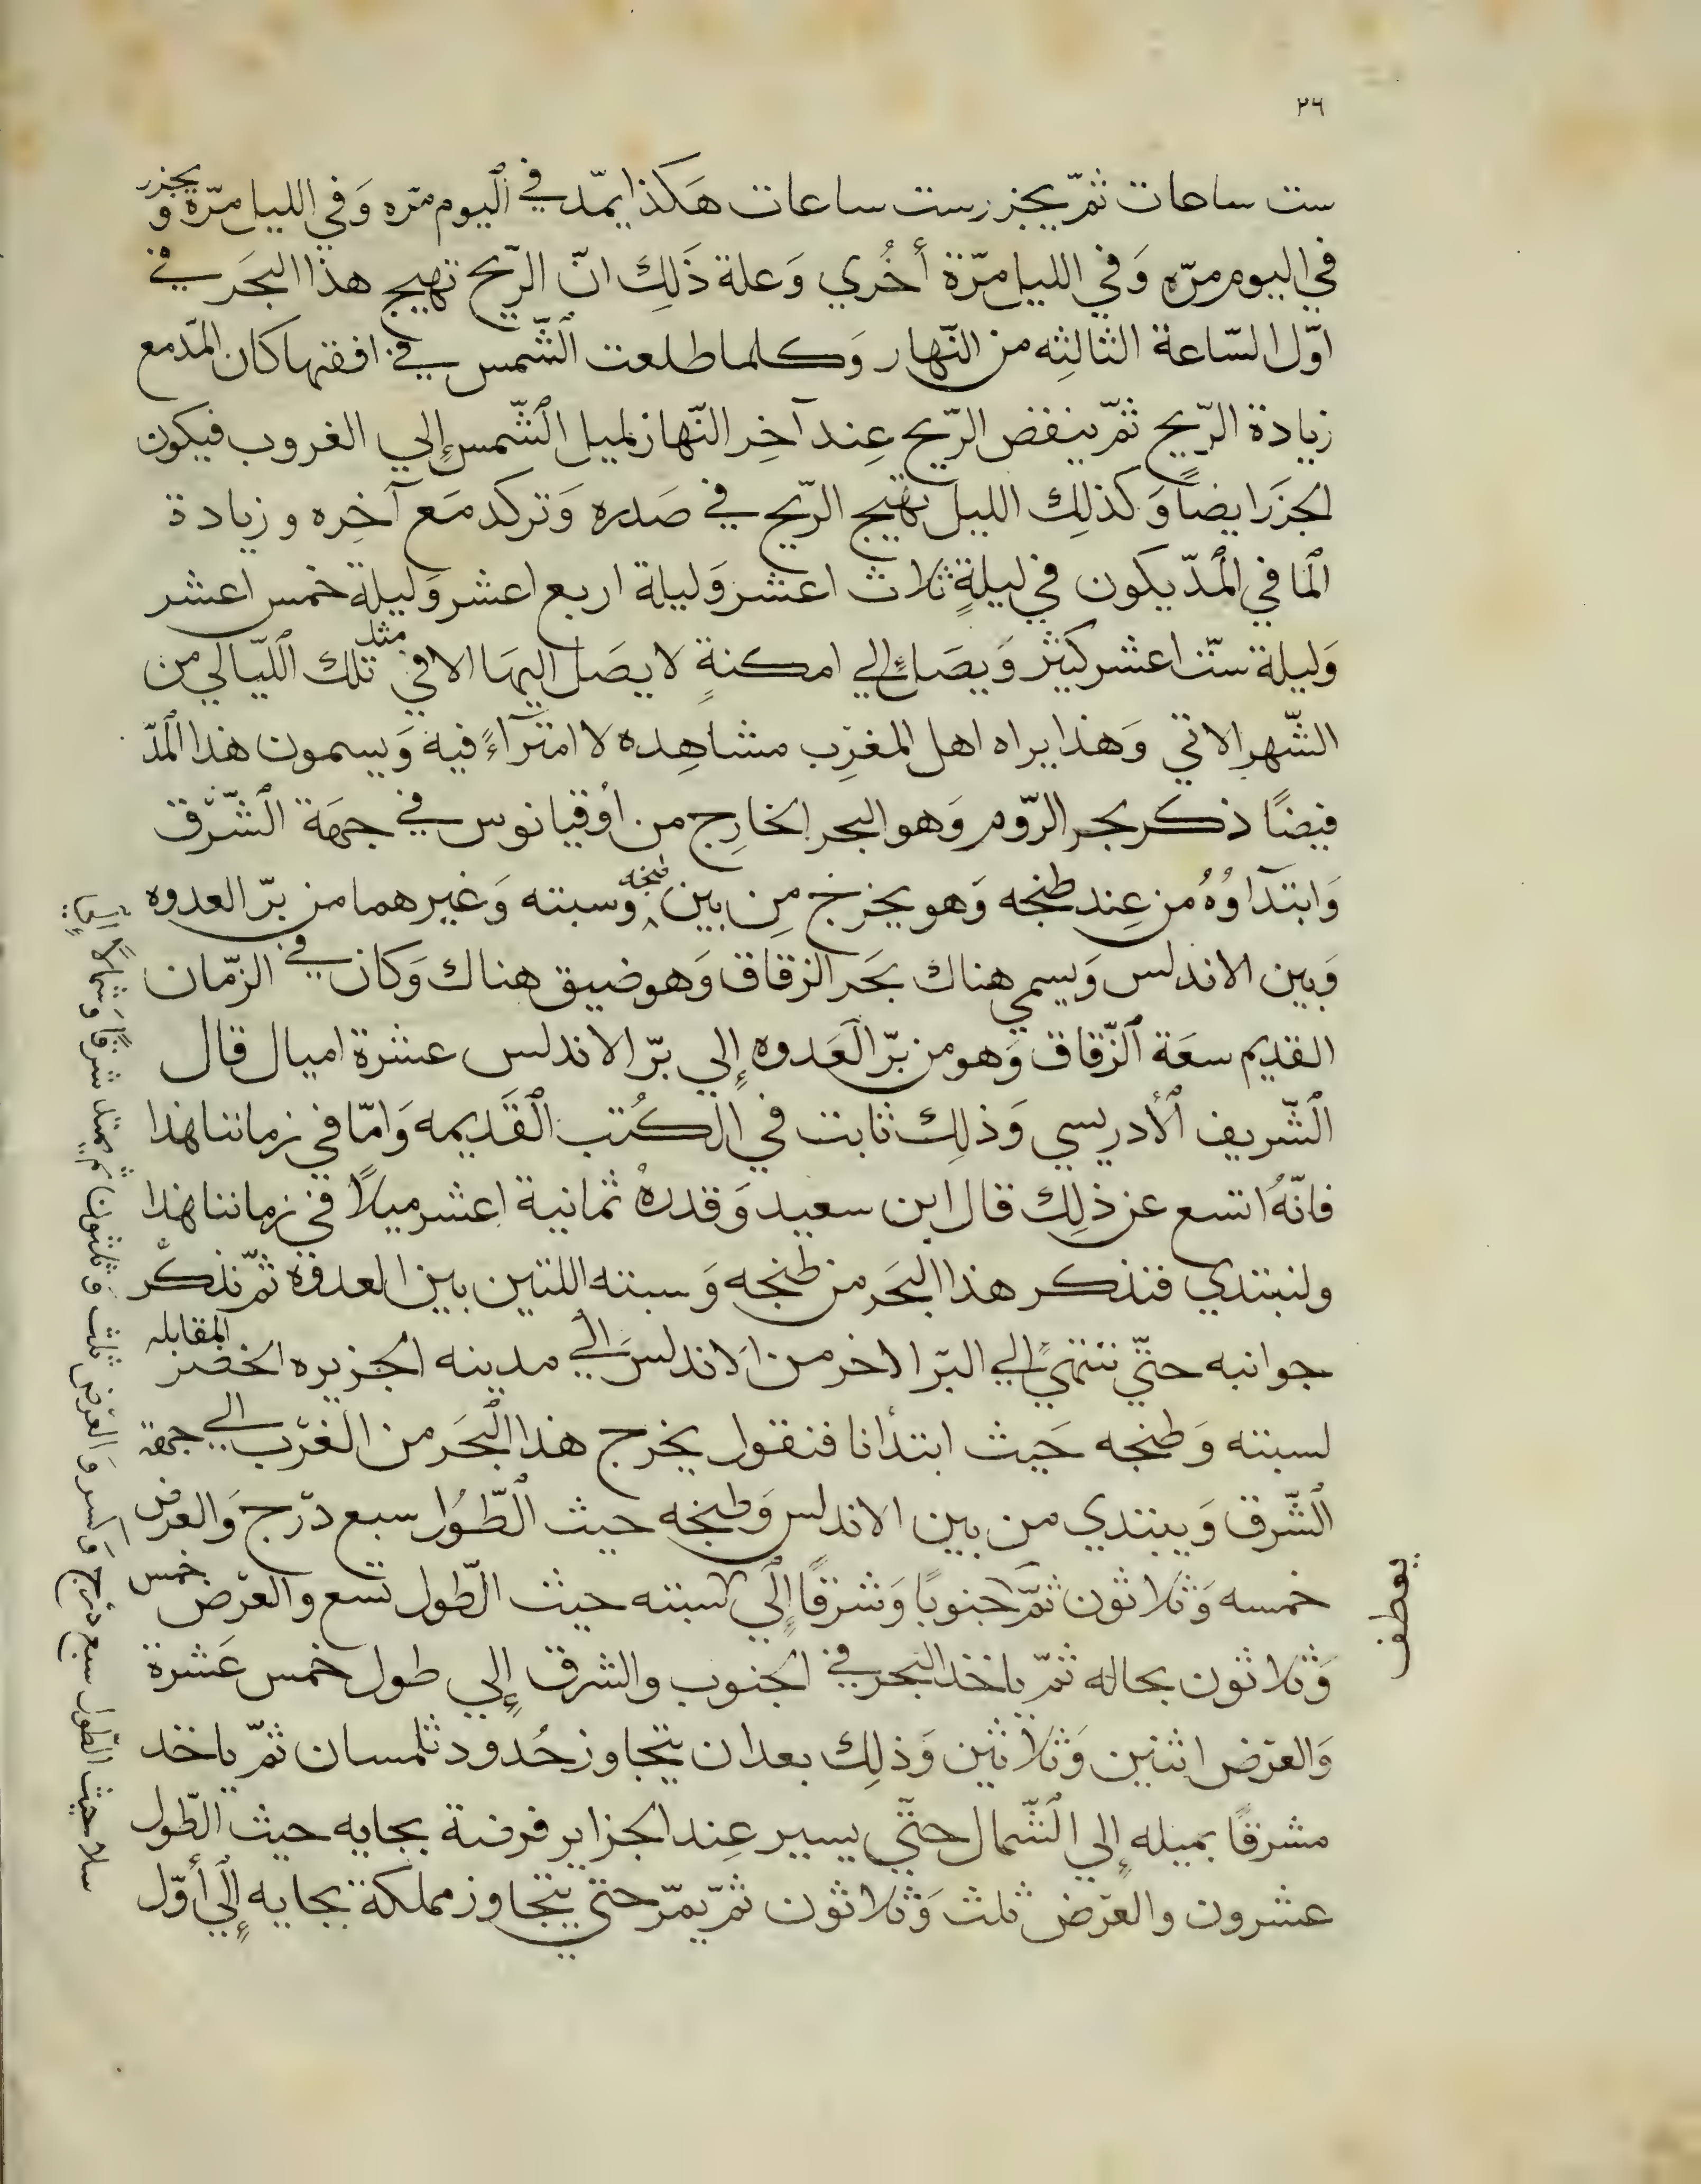 ٢٦
ست ساعات ثمّ يجزر ست ساعات هَكذا يمّد في اليوم مرّه وَفي الليل مرّة ويجزر
في اليوم مرّه وَفي الليل مرّة أخُري وَعلة ذَلِك انّ الرّيح تهيج هذا البحَر في
اوّل السّاعة الثالثِه من النّهار وَكلما طلعت الشّمس في افقها كان المّد مع
زيادة الرّيح ثمّ ينقض الرّيح عِند آخِر النّهار لميل الشّمس إلي الغروب فيكون
الجزَر ايضاً وَكذلِك الليل تهيج الرّيح في صَدره وَتركد مَع آخِره و زيادة
الما في المدّ يكون في ليلةٍ ثلاث اعشر وَليلة اربع اعشر وَليلة خمس اعشر
وَليلة ستّ اعشر كثير وَيصَل إلي امكنةٍ لا يصَل اليهَا الا في مثل تلك اللّيالي من
الشّهر الاتي وَهذا يراه اهل المغرِب مشاهِده لا امترآءً فيه وَيسمون هذا المدّ
فيضًا ذكر بحر الرّوم وَهو البحر الخارِج من أوقيانوس في جهَة الشّرق
وَابتدآوُهُ من عِند طنجه وَهو يخرج مِن بين طنجه وسبته وَغيرهما من برّ العدوه
وَبين الاندلس وَيسمي هناك بحَر الزقاق وَهو ضيق هناك وَكان في الزّمان
القديم سعَة الزّقاق وَهو من برّ العَدوه إلي برّ الاندلس عشرة اميال قال
الشّريف الأدريسي وَذلِك ثابت في الكُتب القَديمه وَامّا في زماننا هذا
فانّهُ اتسع عن ذلِك قال ابن سعيد وَقدرهُ ثمانية اعشر ميلاً في زماننا هذا
ولنبتدي فنذكر هذا البحَر من طنجه وَسبته اللتين بين العدوَة ثمّ نذكر
جوانبه حتّي ننتهي إلي البرّ الاخر من الاندلس الي مدينه الجزيره الخضر المقابله
لسبته وَطنجه حَيث ابتدأنا فنقول يخرج هذا البحَر من الغَرب الي جهة
الشّرق وَيبتدي من بين الاندلس وَطنجه حيث الطّوُل سبع درَج وَالعرض
خمسه وَثلاثون ثمّ جنوبًا وَشرقًا إلي سبته حيث الطّول تسع والعَرض خمس
وَثلاثون بحاله ثمّ ياخذ البحر في الجنوب والشرق إلي طول خمس عَشرة
وَالعَرض اثنين وَثلاثين وَذلِك بعد ان يتجاوز حُدود تلمسان ثمّ ياخذ
مشرقًا بميله إلي الشّمال حتّي يسير عِند الجزاير فرضة بجايه حيث الطّول
عشرون والعَرض ثلث وَثلاثون ثمّ يمّر حتي يتجاوز مملكة بجايه إلي أوّل
سلا حيث الطّول سبع درَج وَالعَرض ثلث وثلثون ثم يمتد شرقاً وَشمالاً
يعطف